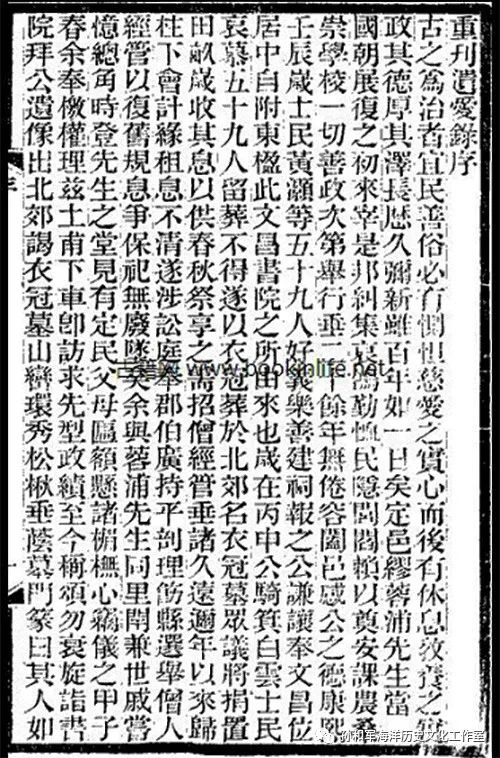 重刊遺愛錄序
古之爲治者宜民善俗必有惻怛慈愛之實心而後有休息教養之實
政其德厚其澤長歷久彌新雖百年如一日矣定邑繆蓉浦先生當
國朝展復之初來宰是邦糾集哀鴻勤恤民隱閭閻賴以奠安課農桑
崇學校一切善政次第舉行垂二十餘年無倦容闔邑感公之德康熙
壬辰歲士民黃灝等五十九人好義樂善建祠報之公謙讓奉文昌位
居中自附東楹此文昌書院之所由來也歲在丙申公騎箕白雲士民
哀慕五十九人留葬不得遂以衣冠葬於北郊名衣冠墓眾議將捐置
田畝歲收其息以供春秋祭享之需招僧經管垂諸久遠邇年以來歸
柱下會計緣租息不清遂涉訟庭奉郡伯廣持平剖理飭縣選舉僧人
經管以復舊規息爭保祀無廢墜矣余與蓉浦先生同里閈兼世戚嘗
憶總角時登先生之堂見有定民父母匾額懸諸楣橅心竊儀之甲子
春余奉檄權理茲土甫下車卽訪求先型政績至今稱頌勿衰旋詣書
院拜公遺像出北郊謁衣冠墓山巒環秀松楸垂蔭墓門篆曰其人如
古籍网 www.bookinlife.net
孙和军海洋历史文化工作室